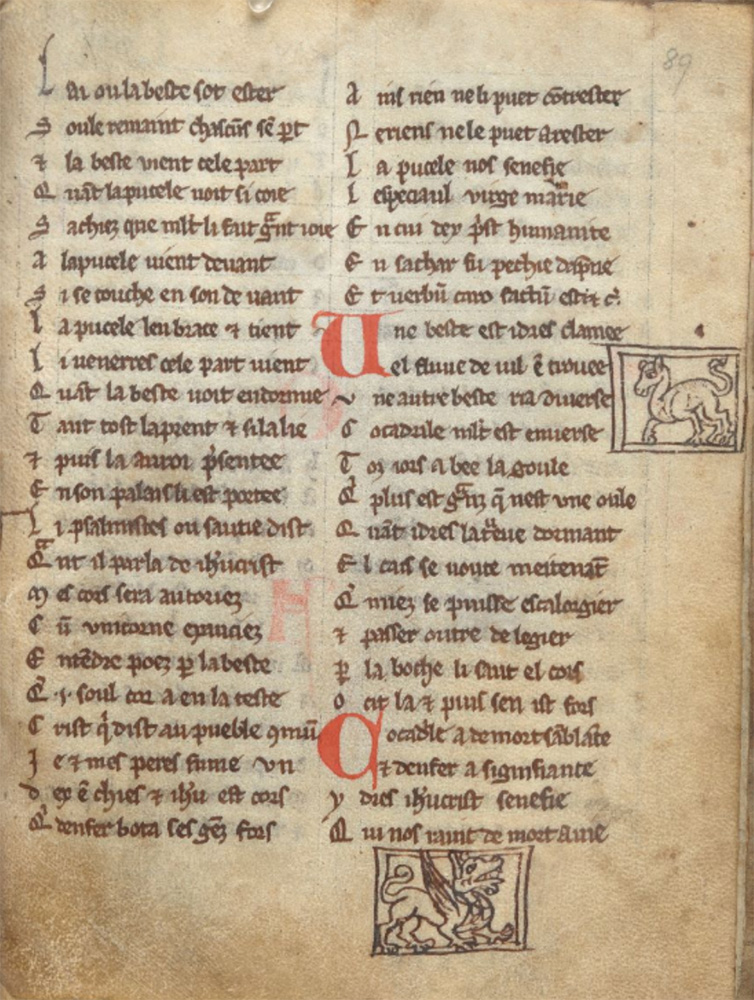 89
L ai ou la beste sot ester
S oule remaint chascūs sē p̱t
⁊ la beste vient cele part
Q uāt la pucele voit si coie
S achiez que ml̄t li fait g̃nt ioie
A la pucele vient devant
S i se couche en son devant
l a pucele lenbrace ⁊ tient
l i veneres cele part vient
Q uāt la beste voit endormie
T ant tost la prent ⁊ si la lie
⁊ puis la au roi p̄sentee
E n son palais li est portee
l i psalmistes ou sautie dist
Q̃nt il parla de ih̄ucrist
m es cors sera
C ū vnicorne
E ntēdre poez p̱ la beste
Q̄ .i. soul cor a en la teste
C rist q̇ dist au pueble 9mū
J e ⁊ mes peres sume vn
d ex ē chies ⁊ ih̄u est cors
Q̄ denfer bota ses gēz fors
A ins rien ne li puet cōtrester
N e riens ne le puet arester
l a pucele nos senefie
l especiaul virge marie
E n cui dex p̄st humanite
E n sachar fu pechie
E t verbū caro factū est ⁊ c̄.
U ne beste est idres clamee
el fluue de nil ē trovee
v ne autre beste i a diverse
C ocadrile ml̄t est enverse
T oz iors a bee la goule
Q̄ plus est g̃nz q̄ nest vne oule
Q uāt idres la treue dormant
E l se voute
Q̄ miez se puisse escalorgier
⁊ passer outre de legier
p̱ la boche li saut el cors
o cit la ⁊ puis sen ist fors
C ocad'le a de mort sāblāce
⁊ denfer a signifiance
y dres ih̄ucrist senefie
Q ui nos raint de mort a vie